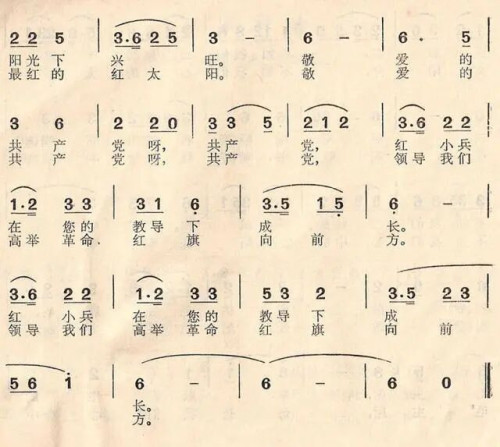 2 2 5 | 3·6 2 5 | 3 – | 6 – | 6· 5 |
阳光下 兴 旺。 敬 爱 的
最红的 红 太 阳。 敬 爱 的
3 6 | 2 2 0 | 3 3 5 | 2 1 2 | 3·6 2 2 |
共 产 党 呀, 共产 党, 红 小兵
共 产 党 呀, 共产 党, 领导 我们
1·2 3 3 | 3 3 1 6 | 3·5 1 5 | 6 – |
在 您的 教导 下 成 长。
高举 革命 红 旗 向 前 方。
3·6 2 2 | 1·2 3 3 | 5 3 2 | 3·5 2 3 |
红 小兵 在 您的 教导 下 成
领导 我们 高举 革命 红 旗 向 前
5 6 1 | 6 – | 6 – | 6 0 ‖
长。
方。